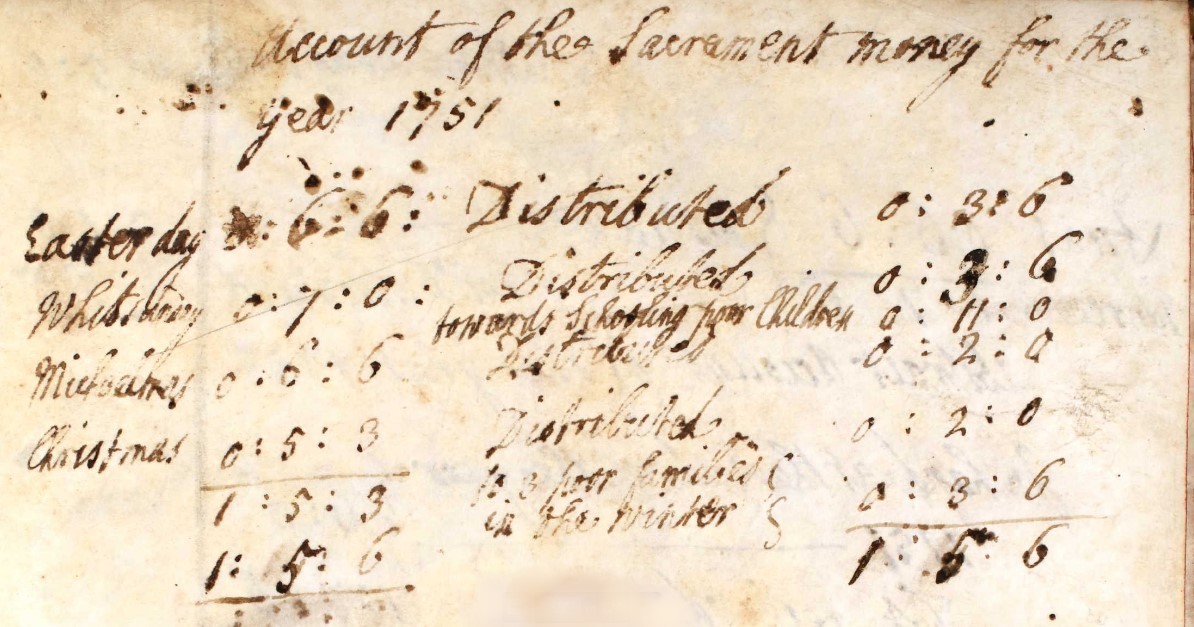 Account of the Sacrament money for the
year 1751
Easter day 0: 6: 6: Distributed 0: 3: 6
Whitsunday 0: 7: 0: Distributed 0: 3: 6
towards Schooling poor Children 0: 11: 0
Michaelmas 0: 6: 6 Distributed 0: 2: 0
Christmas 0: 5: 3 Distributed 0: 2: 0
1: 5: 3 to 3 poor families 0: 3: 6
in the winter
1: 5: 6 1: 5: 6